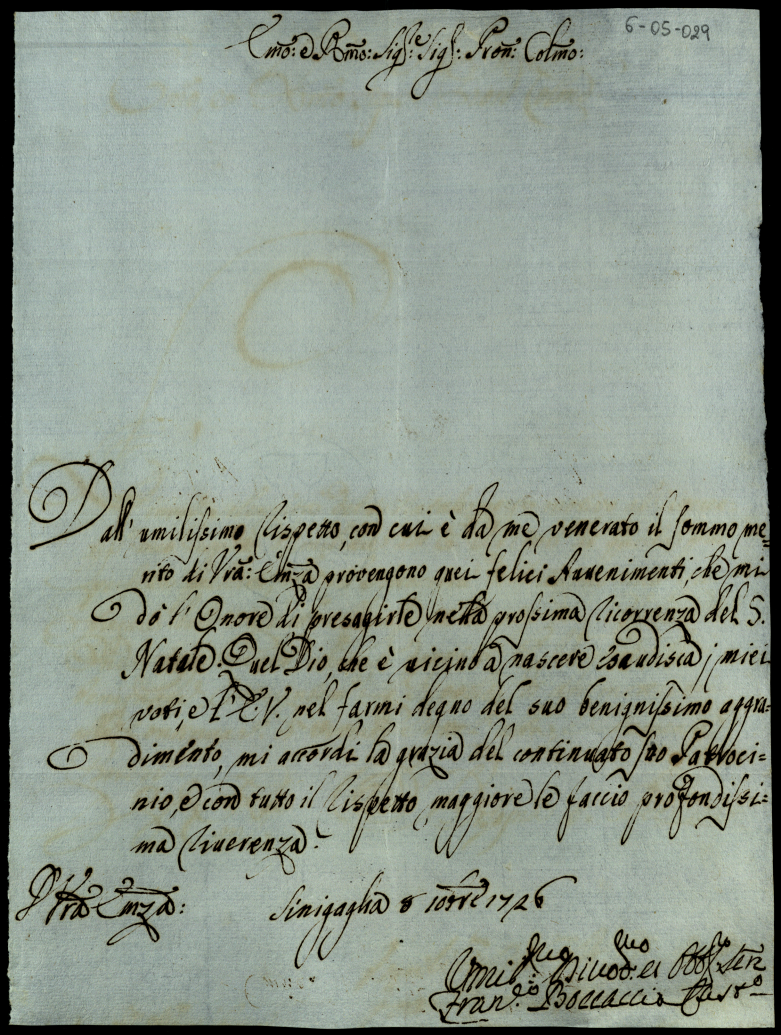 6-05-029
Emo: e Rmo: Sig:re Sig:re Pron: Colmo:
Dall' umilissimo rispetto, con cui è da me venerato il sommo me=
rito di Vra: Emza provengono quei felici Avvenimenti, che mi
dò l'Onore di presagirle nella prossima ricorrenza del S.
Natale. Quel Dio, che è vicino à nascere esaudisca i miei
voti, e l'E.V. nel farmi degno del suo benignissimo aggra=
dimento, mi accordi la grazia del continuato suo Patroci=
nio, e con tutto il rispetto maggiore le faccio profondissi=
ma riverenza.
D' Vra Emza: Sinigaglia 8 10bre 1726
Umil:mo Divod:mo et Obb:mo Ser:re
Fran:co Boccaccio